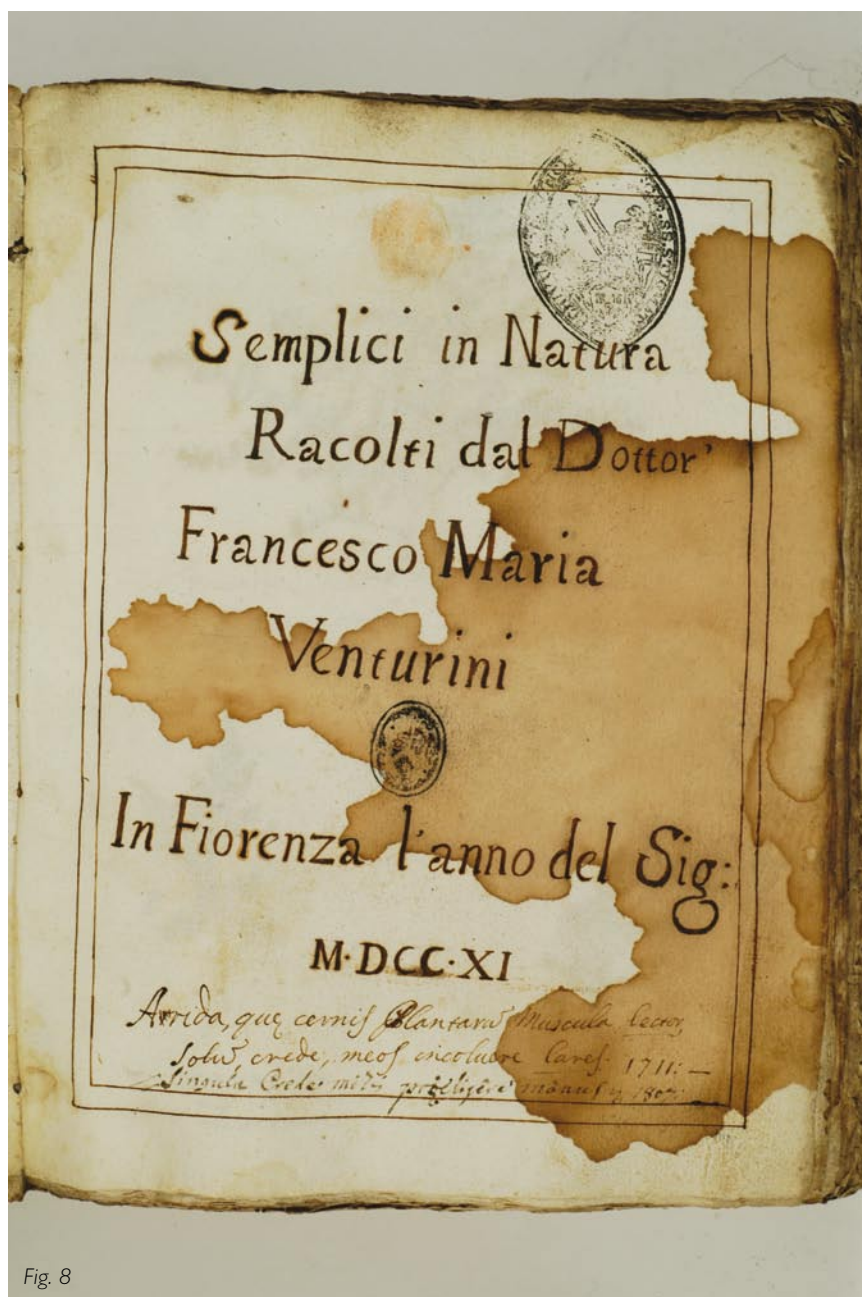 Semplici in Natura
Racolti dal Dottor'
Francesco Maria
Venturini
In Fiorenza l'anno del Sig:
M·DCC·XI
Arrida, que cernis Plantarũ Muscula lector,
Solũ, crede, meos incoluere Lares. 1711: —
Singula Crede mihi manus
Fig. 8